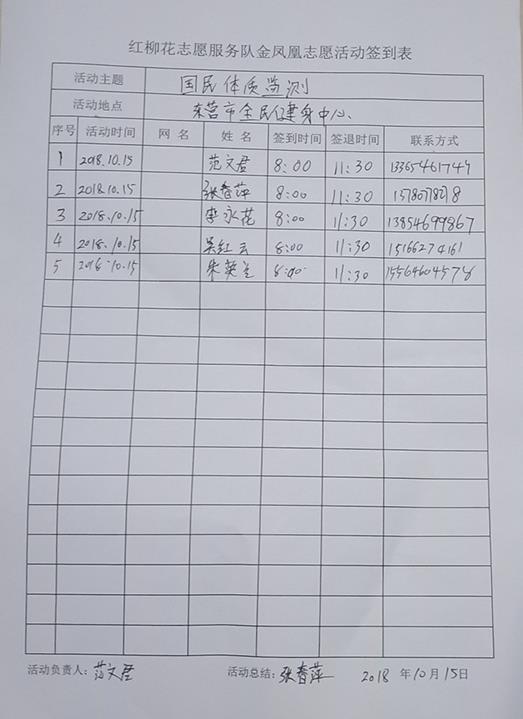 红柳花志愿服务队金凤凰志愿活动签到表
活动主题 国民体质监测
活动地点 东营市全民健身中心
序号 活动时间 网 名 姓 名 签到时间 签退时间 联系方式
1 2018.10.15 范文君 8:00 11:30 13365461747
2 2018.10.15 张春萍 8:00 11:30
3 2018.10.15 李永花 8:00 11:30 13854699867
4 2018.10.15 吴红云 8:00 11:30 15166274161
5 2018.10.15 朱英兰 8:00 11:30 15564604578
活动负责人: 范文君 活动总结: 张春萍 2018 年10月15日